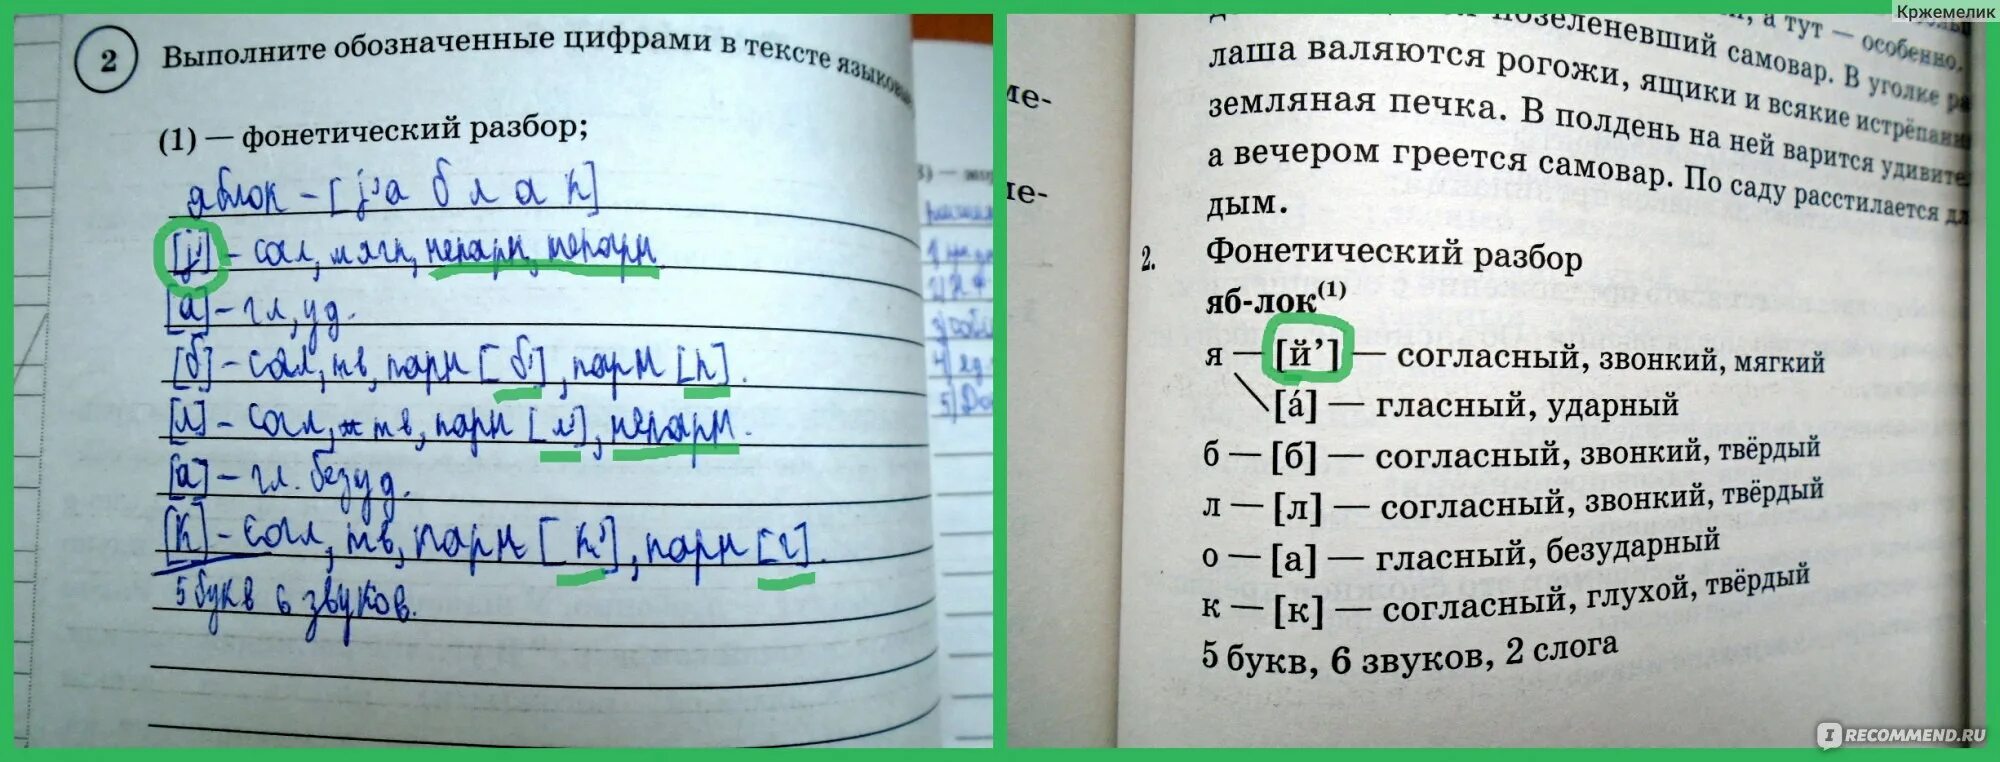 2 Выполните обозначенные цифрами в тексте языковые
(1) — фонетический разбор;
яблок - [j'а б л а к]
[j'] - согл, мягк, непарн, непарн
[а] - гл, уд.
[б] - согл, тв, парн [б'], парн [п].
[л] - согл, тв, парн [л'], непарн.
[а] - гл. безуд.
[к] - согл, тв, парн [к'], парн [г].
5 букв 6 звуков.
Кржемелик
а тут — особенно,
позеленевший самовар. В уголке
лаша валяются рогожи, ящики и всякие истрёпанн
земляная печка. В полдень на ней варится удивите
а вечером греется самовар. По саду расстилается дл
дым.
ме-
ме-
2. Фонетический разбор
яб-лок(1)
я — [й’] — согласный, звонкий, мягкий
[á] — гласный, ударный
б — [б] — согласный, звонкий, твёрдый
л — [л] — согласный, звонкий, твёрдый
о — [а] — гласный, безударный
к — [к] — согласный, глухой, твёрдый
5 букв, 6 звуков, 2 слога
I RECOMMEND.RU